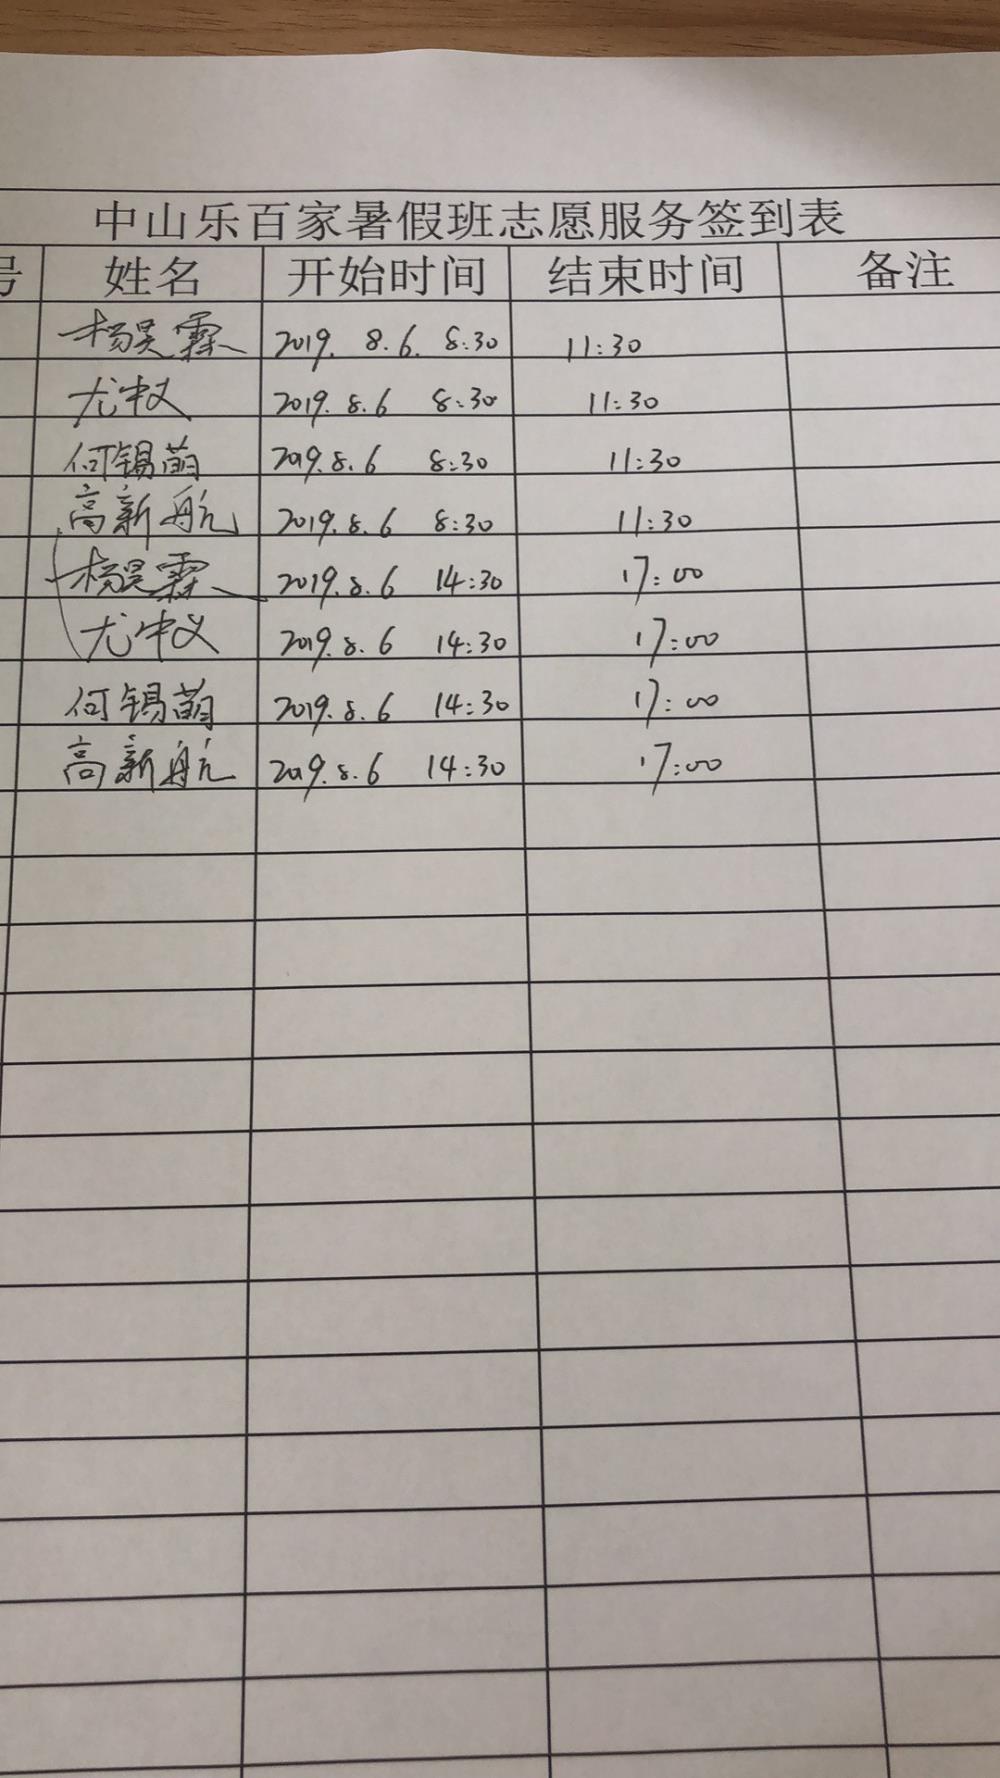 中山乐百家暑假班志愿服务签到表
号 姓名 开始时间 结束时间 备注
杨昊霖 2019. 8.6. 8:30 11:30
尤中义 2019.8.6 8:30 11:30
何锡萌 2019.8.6 8:30 11:30
高新航 2019.8.6 8:30 11:30
杨昊霖 2019.8.6 14:30 17:00
尤中义 2019.8.6 14:30 17:00
何锡萌 2019.8.6 14:30 17:00
高新航 2019.8.6 14:30 17:00